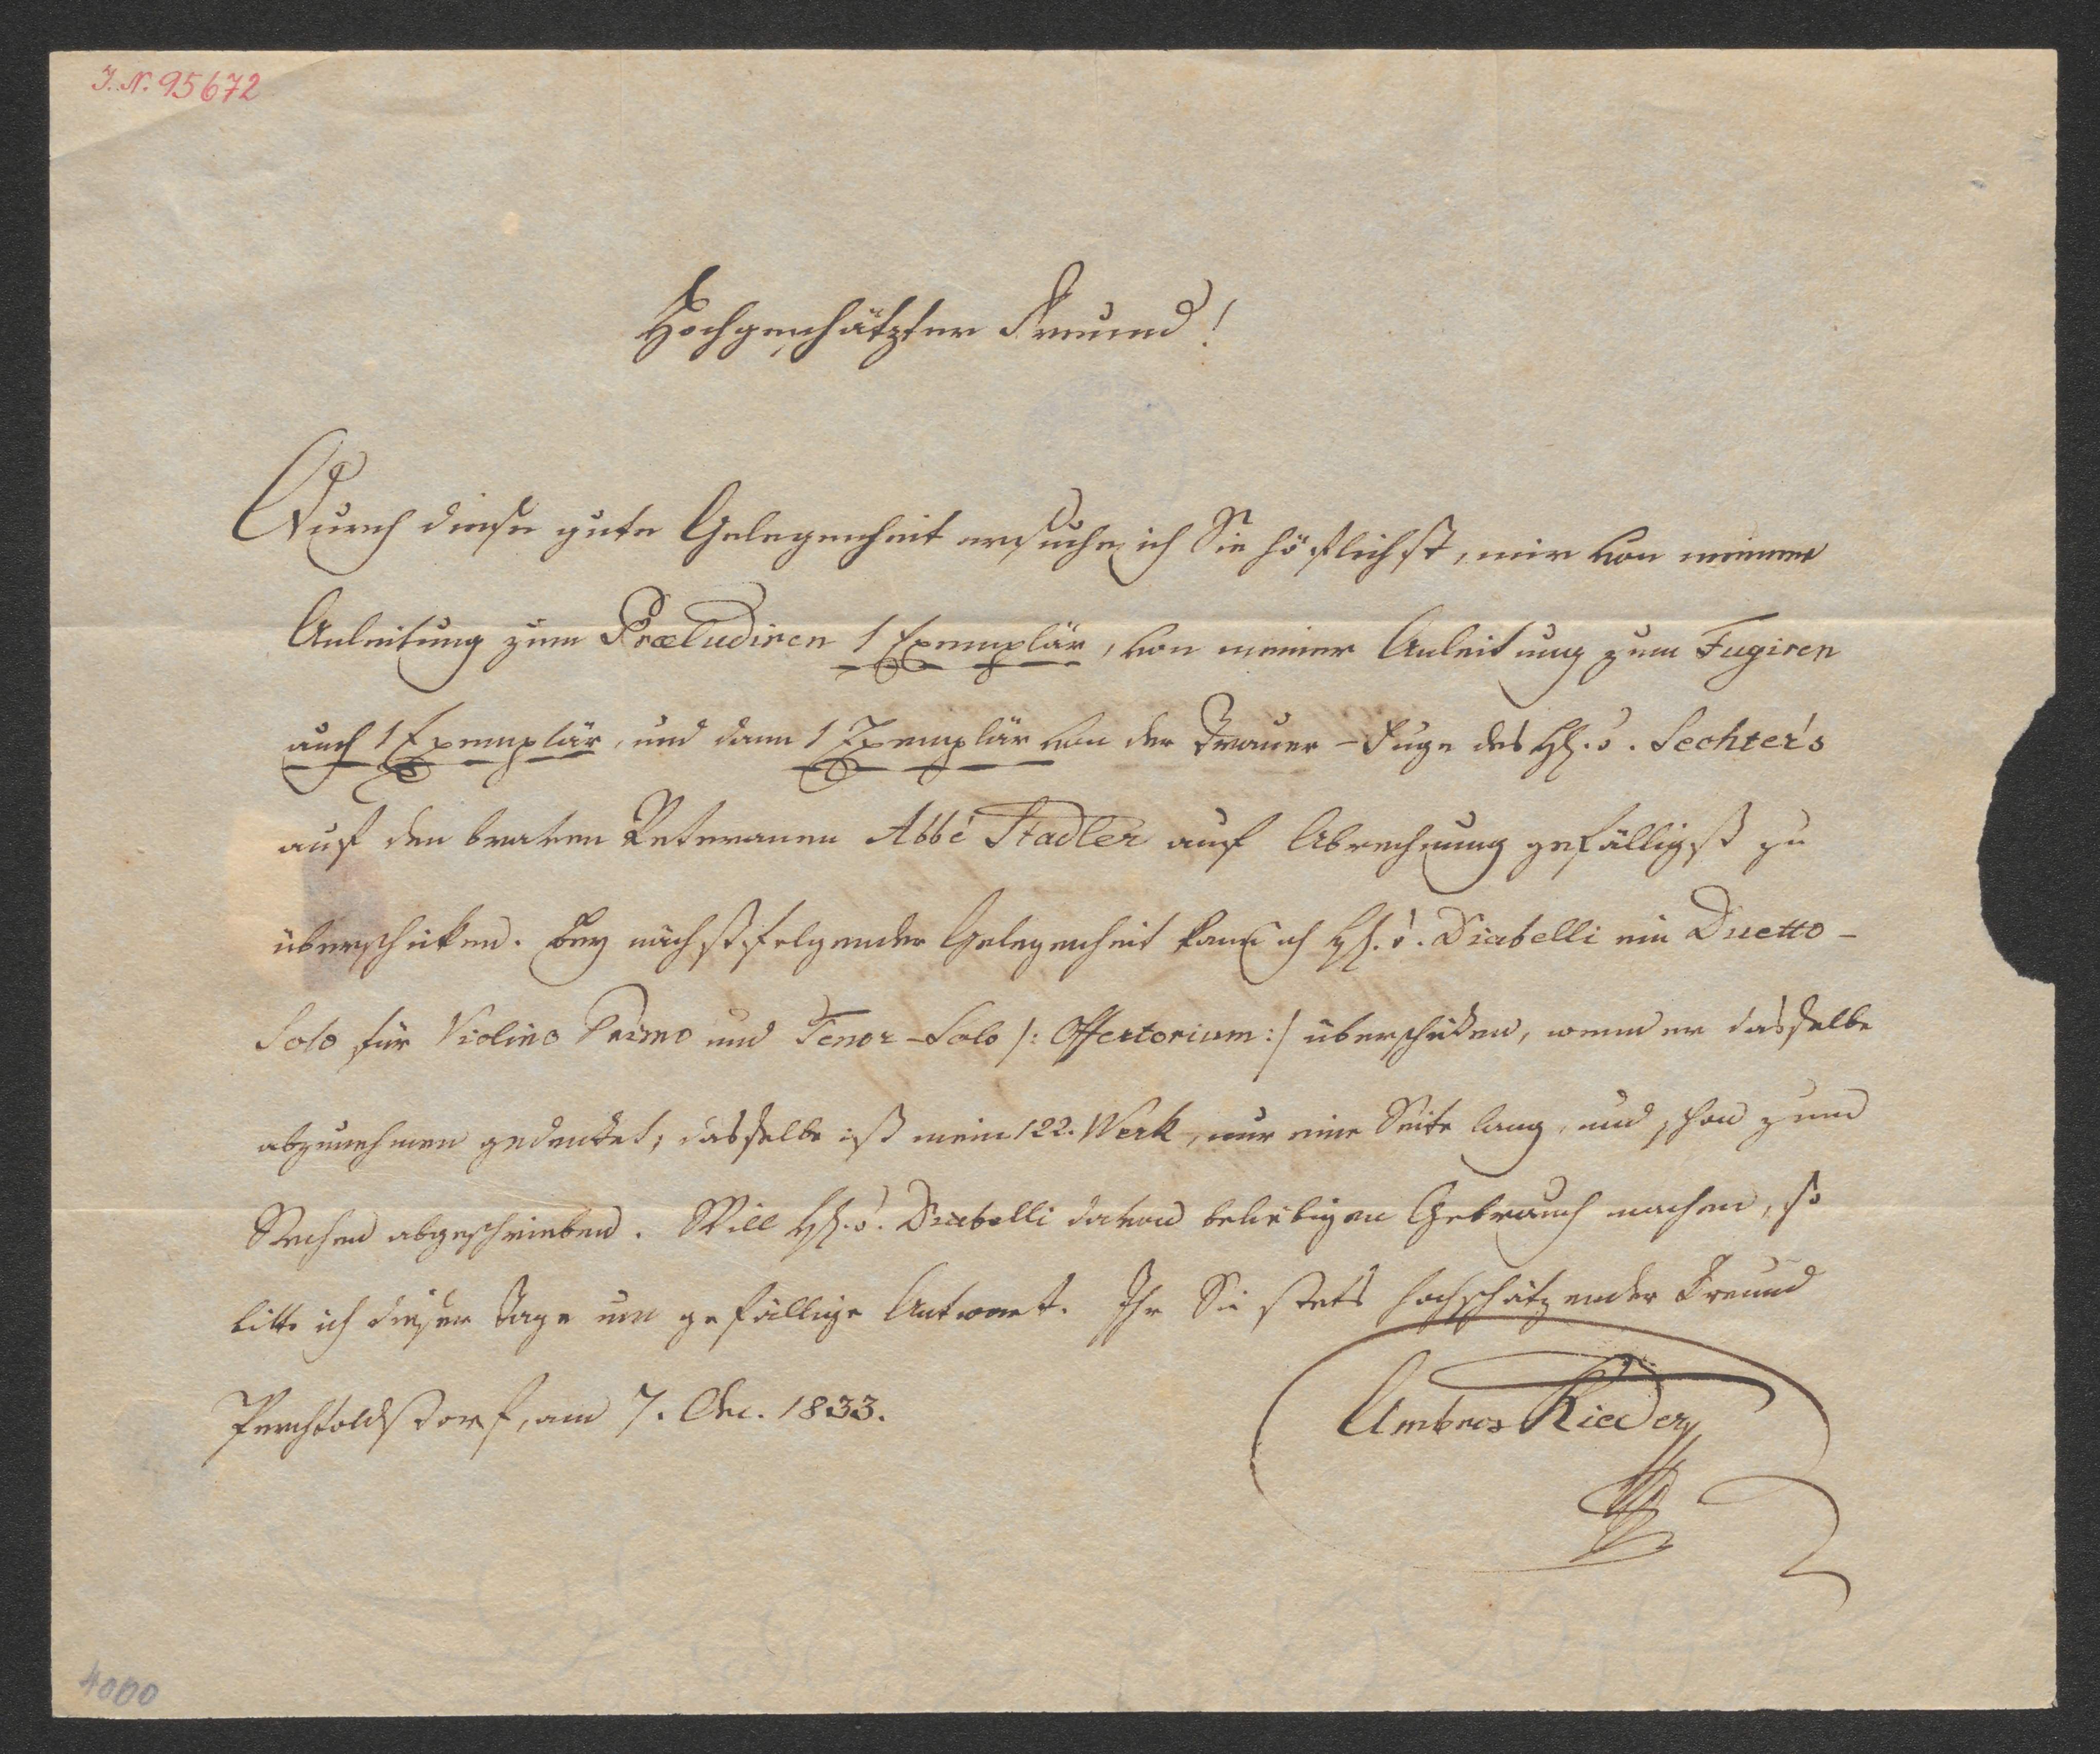 I. N. 95672
Hochgeschätzter Freund!
Durch diese gute Gelegenheit ersuche ich Sie höflichst, mir von meiner
Anleitung zum Præludiren 1 Exemplär, von meiner Anleitung zum Fugiren
auch 1 Exemplär, und dann 1 Exemplär von der Trauer-Fuge des H. v. Sechter's
auf den braven Veteranen Abbé Stadler auf Abrechnung gefälligst zu
überschicken. Bey nächstfolgender Gelegenheit kann ich H. v. Diabelli ein Duetto-
Solo für Violino Primo und Tenor-Solo /: Offertorium :/ überschicken, wenn er dasselbe
abzunehmen gedenket; dasselbe ist mein 122. Werk, nur eine Seite lang, und schon zum
Stechen abgeschrieben. Will H. v. Diabelli davon beliebigen Gebrauch machen, so
bitte ich dieser Tage um gefällige Antwort. Ihr Sie stets hochschätzender Freund
Perchtoldsdorf, am 7. Dec. 1833.
Ambros Rieder
4000